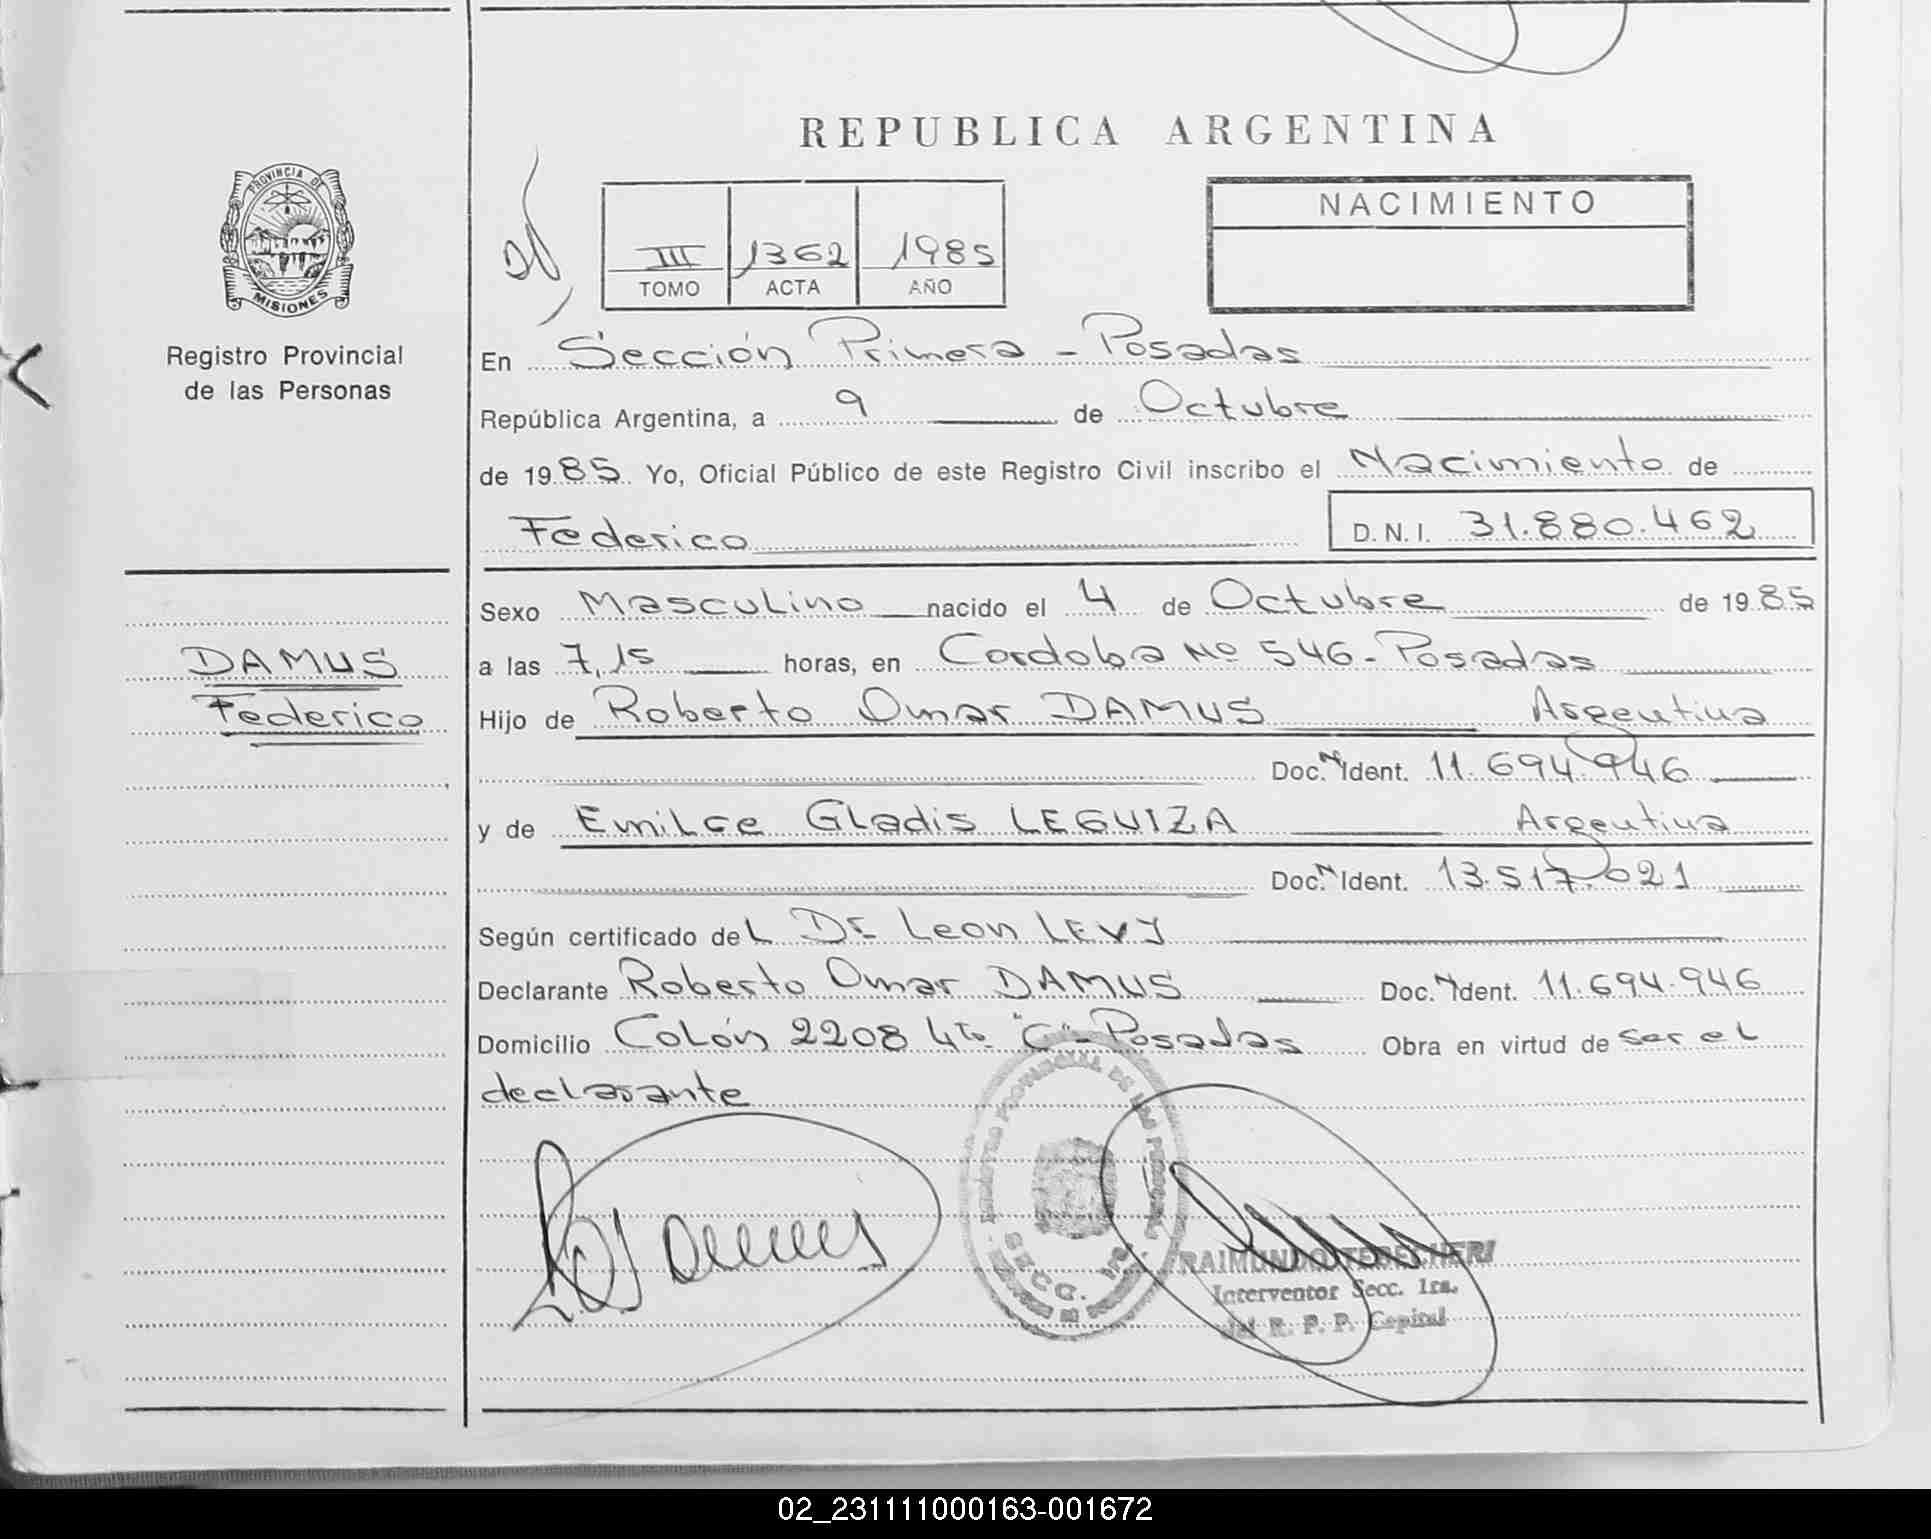 REPUBLICA ARGENTINA
PROVINCIA DE
MISIONES
Registro Provincial
de las Personas
III 1362 1985
TOMO ACTA AÑO
NACIMIENTO
En Sección Primera - Posadas
República Argentina, a 9 de Octubre
de 1985. Yo, Oficial Público de este Registro Civil inscribo el Nacimiento de
Federico D.N.I. 31.880.462
Sexo Masculino nacido el 4 de Octubre de 1985
DAMUS
Federico
a las 7,15 horas, en Cordoba Nº 546 - Posadas
Hijo de Roberto Omar DAMUS Argentina
Doc. Ident. 11.694.946
y de Emilce Gladis LEGUIZA Argentina
Doc. Ident. 13.517.021
Según certificado del Dr Leon LEVY
Declarante Roberto Omar DAMUS Doc. Ident. 11.694.946
Domicilio Colón 2208 4to. "C" - Posadas Obra en virtud de ser el
declarante
REGISTRO PROVINCIAL DE LAS PERSONAS
SECC. 1ra.
RAIMUNDO
Interventor Secc. 1ra.
del R. P. P. Capital
02_231111000163-001672